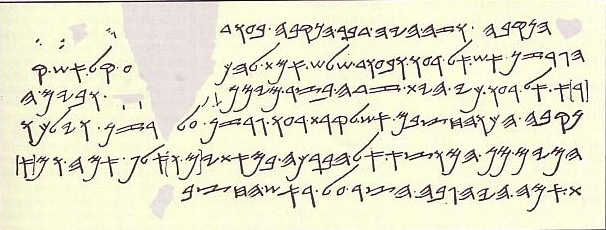 𐤄𐤍𐤒𐤁𐤄 . 𐤅𐤆𐤄 . 𐤄𐤉𐤄 . 𐤃𐤁𐤓 . 𐤄𐤍𐤒𐤁𐤄 . 𐤁𐤏𐤅𐤃
𐤄𐤂𐤓𐤆𐤍 . 𐤀𐤔 . 𐤀𐤋 . 𐤓𐤏𐤅 . 𐤅𐤁𐤏𐤅𐤃 . 𐤔𐤋𐤔 . 𐤀𐤌𐤕 . 𐤋𐤄𐤍 𐤒𐤋 . 𐤀𐤔 . 𐤒
[𐤓]𐤀 . 𐤀𐤋 . 𐤓𐤏𐤅 . 𐤊𐤉 . 𐤄𐤉𐤕 . 𐤆𐤃𐤄 . 𐤁𐤑𐤓 . 𐤌𐤉𐤌𐤍 𐤅𐤁𐤉𐤌 . 𐤄
𐤍𐤒𐤁𐤄 . 𐤄𐤊𐤅 . 𐤄𐤇𐤑𐤁𐤌 . 𐤀𐤔 . 𐤋𐤒𐤓𐤕 . 𐤓𐤏𐤅 . 𐤂𐤓𐤆𐤍 . 𐤏𐤋 . 𐤓𐤆𐤍 . 𐤅𐤉𐤋𐤊𐤅
𐤄𐤌𐤉𐤌 . 𐤌𐤍 . 𐤄𐤌𐤅𐤑𐤀 . 𐤀𐤋 . 𐤄𐤁𐤓𐤊𐤄 . 𐤁𐤌𐤀𐤕𐤉[𐤌 . 𐤅]𐤀𐤋𐤐 . 𐤀𐤌𐤄 . 𐤅𐤌[𐤀]
𐤕 . 𐤀𐤌𐤄 . 𐤄𐤉𐤄 . 𐤂𐤁𐤄 . 𐤄𐤑𐤓 . 𐤏𐤋 . 𐤓𐤀𐤔 . 𐤄𐤇𐤑𐤁